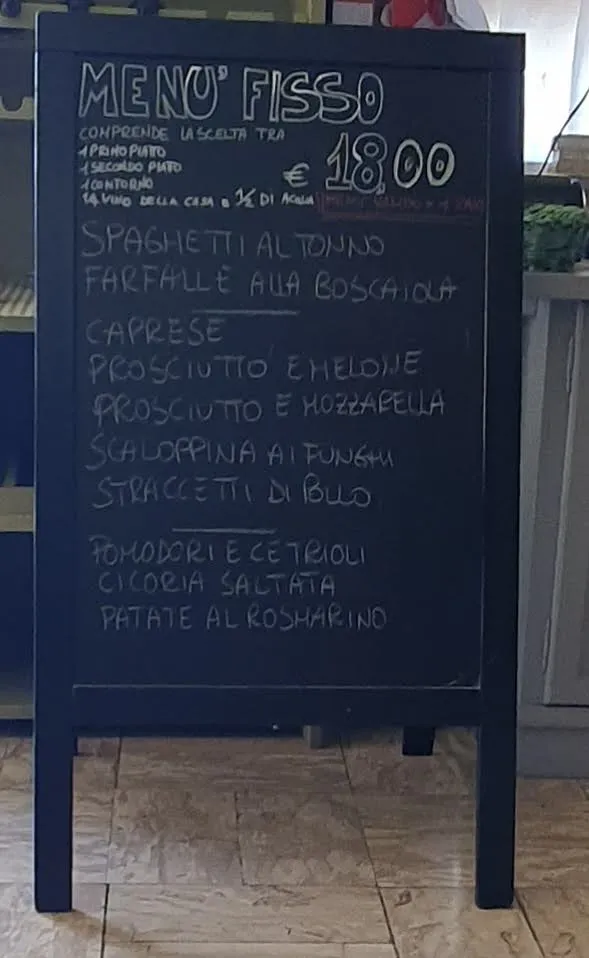 MENU' FISSO
COMPRENDE LA SCELTA TRA
1 PRIMO PIATTO
1 SECONDO PIATO
1 CONTORNO
€ 18,00
1/4 VINO DELLA CASA O 1/2 DI ACQUA
SPAGHETTI AL TONNO
FARFALLE ALLA BOSCAIOLA
CAPRESE
PROSCIUTTO E MELONE
PROSCIUTTO E MOZZARELLA
SCALOPPINA AI FUNGHI
STRACCETTI DI POLLO
POMODORI E CETRIOLI
CICORIA SALTATA
PATATE AL ROSMARINO